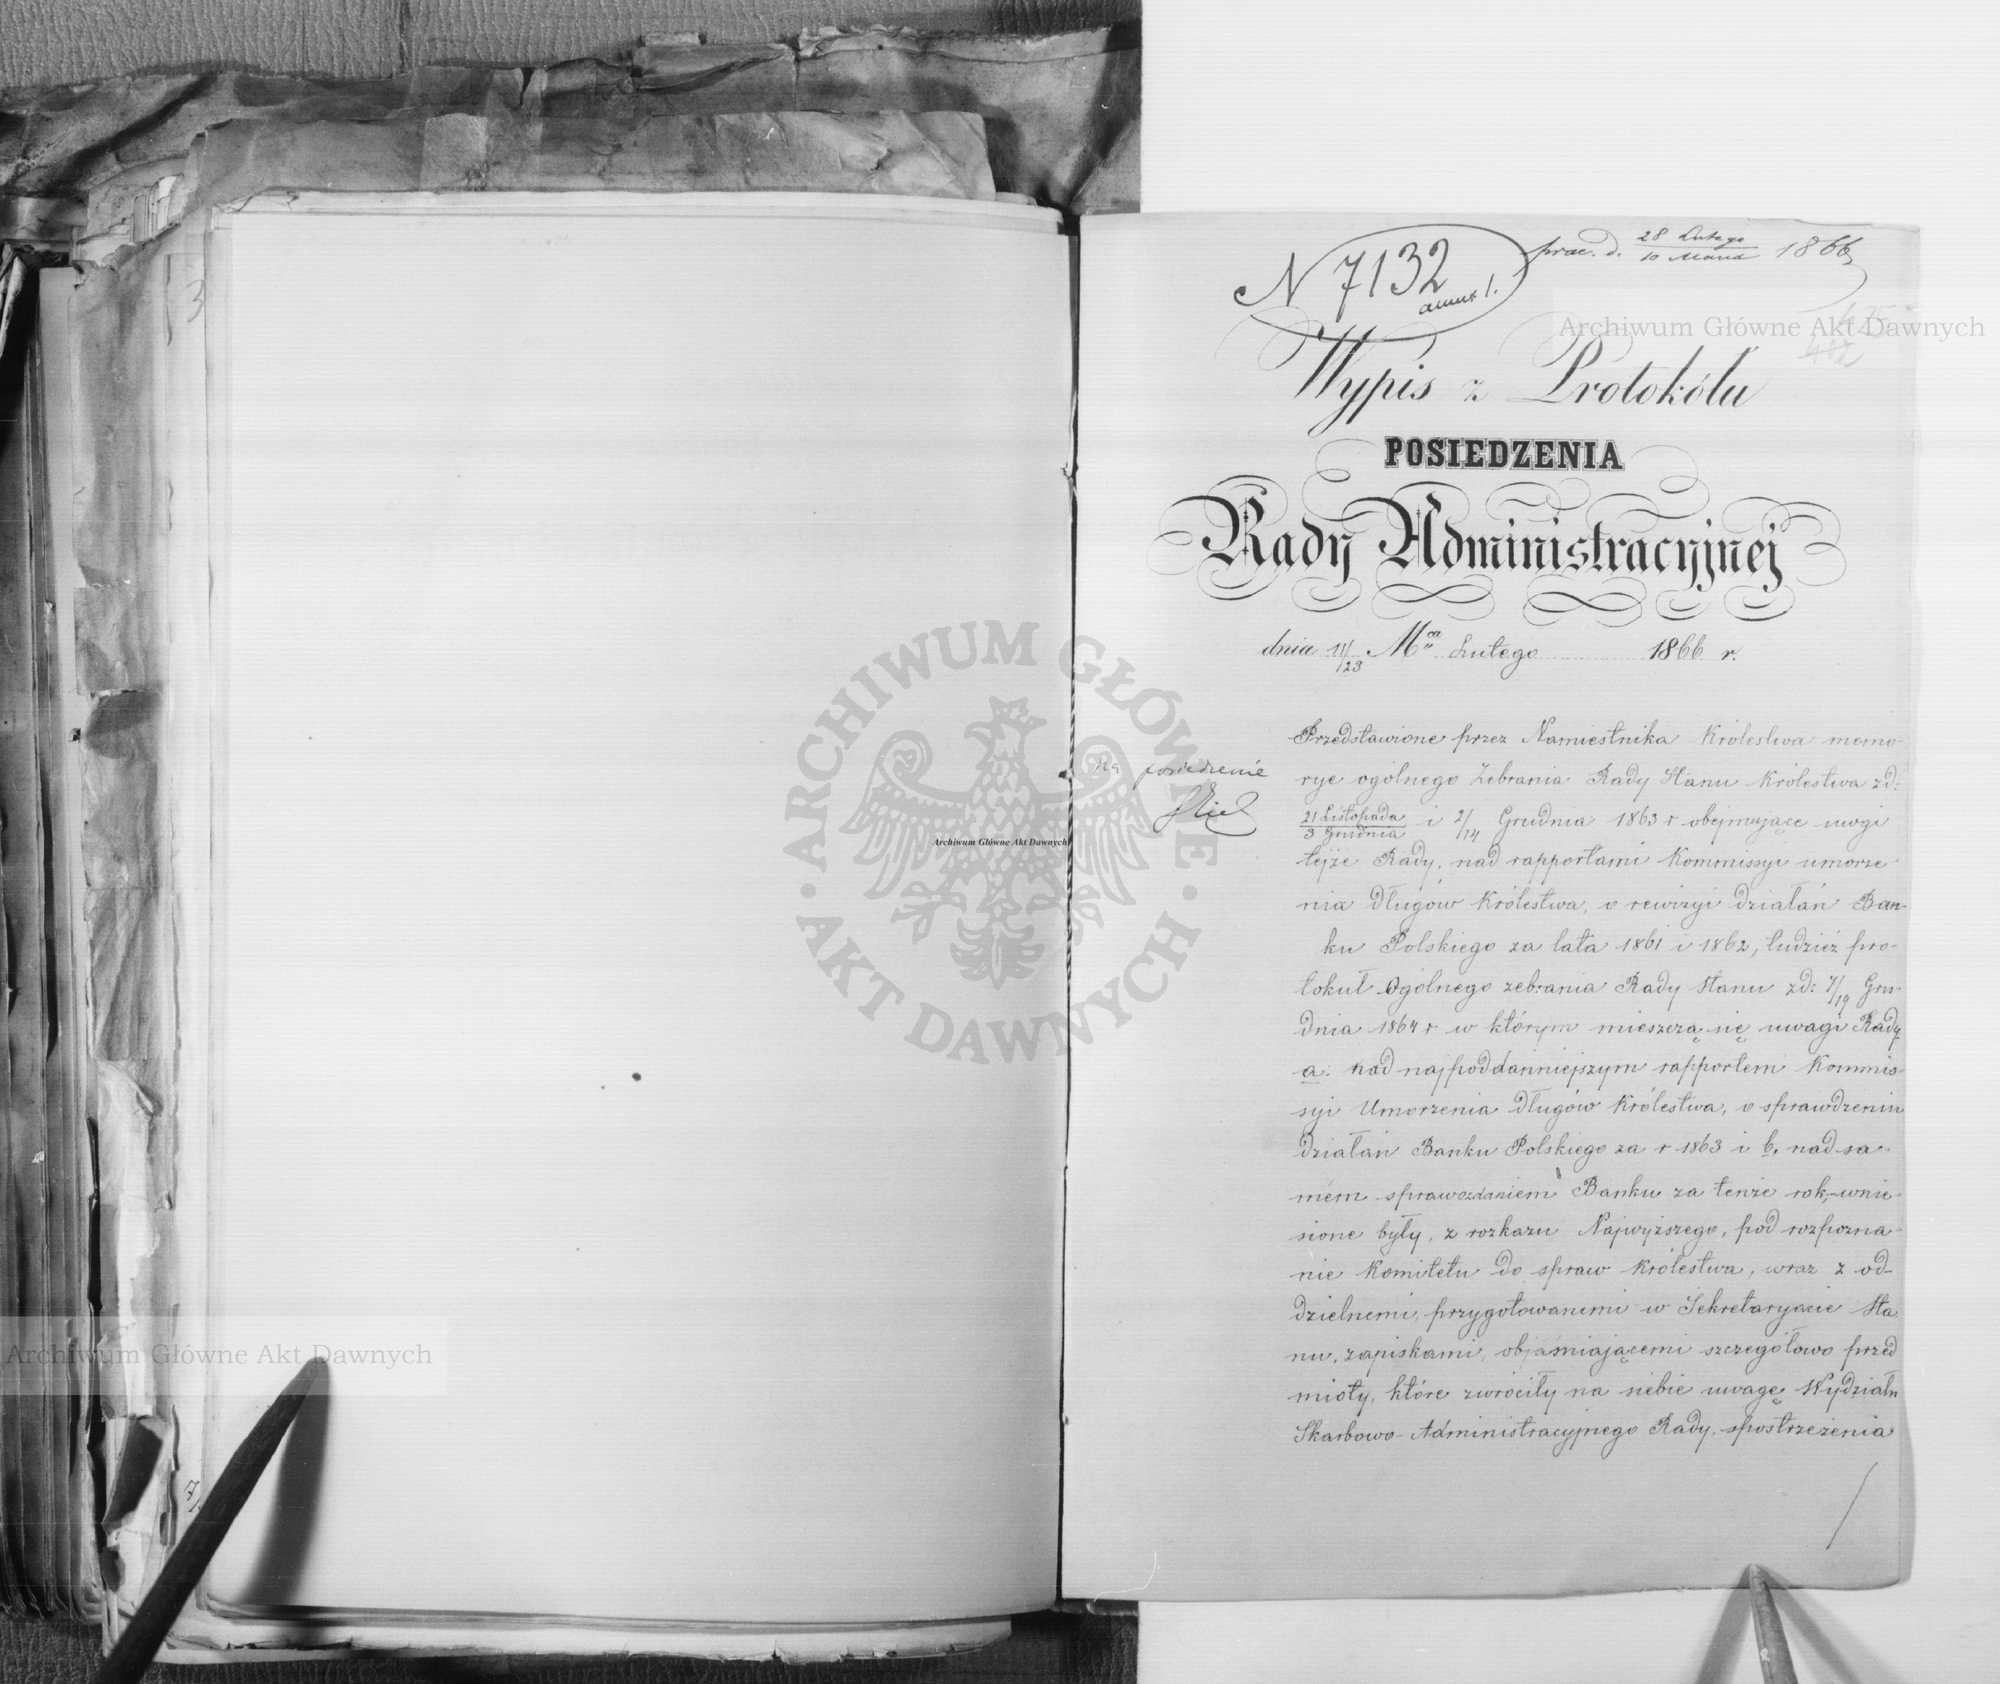 N 7132
annex 1.
prae. d. 28 Lutego / 10 Marca 1866
Wypis z Protokółu
POSIEDZENIA
Rady Administracyjnej
dnia 11/23 Mca Lutego 1866 r.
na posiedzenie
Przedstawione przez Namiestnika Królestwa memo-
rye ogólnego Zebrania Rady Stanu Królestwa z d:
21 Listopada / 3 Grudnia i 2/14 Grudnia 1863 r obejmujące uwagi
tejże Rady, nad rapportami Kommissyi umorze-
nia Długów Królestwa, o rewizyi działań Ban-
ku Polskiego za lata 1861 i 1862, tudzież pro-
tokuł Ogólnego zebrania Rady Stanu z d: 7/19 Gru-
dnia 1864 r w którym mieszczą się uwagi Rady
a: nad najpoddanniejszym rapportem Kommis-
syi Umorzenia Długów Królestwa, o sprawdzeniu
działań Banku Polskiego za r 1863 i b, nad sa-
mem sprawozdaniem Banku za tenże rok, wnie-
sione były, z rozkazu Najwyższego, pod rozpozna-
nie Komitetu do spraw Królestwa, wraz z od-
dzielnemi, przygotowanemi w Sekretaryacie Sta-
nu, zapiskami, objaśniającemi szczegółowo przed
mioty, które zwróciły na siebie uwagę Wydziału
Skarbowo-Administracyjnego Rady, spostrzeżenia
Archiwum Główne Akt Dawnych
Archiwum Główne Akt Dawnych
Archiwum Główne Akt Dawnych
ARCHIWUM GŁÓWNE
AKT DAWNYCH